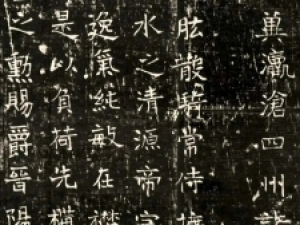 瀛滄四州
散騎常侍
水之清源帝
逸氣純敏在襟
是以負荷先構
之勳賜爵晉陽